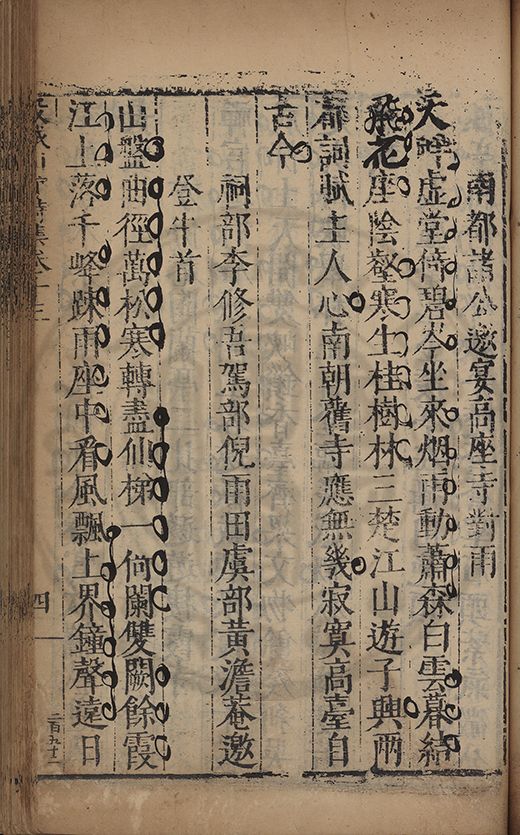 南都諸公邀宴高座寺對雨
天畔虛堂倚碧岑坐來烟雨動蕭森白雲暮結
飛花座陰壑寒生桂樹林三楚江山遊子興兩
都詞賦主人心南朝舊寺應無幾寂寞高臺自
古今
祠部李修吾駕部倪雨田虞部黃澹菴邀
登牛首
山盤曲徑萬松寒轉盡仙梯一倚闌雙闕餘霞
江上落千峰踈雨座中看風飄上界鐘聲遠日
四